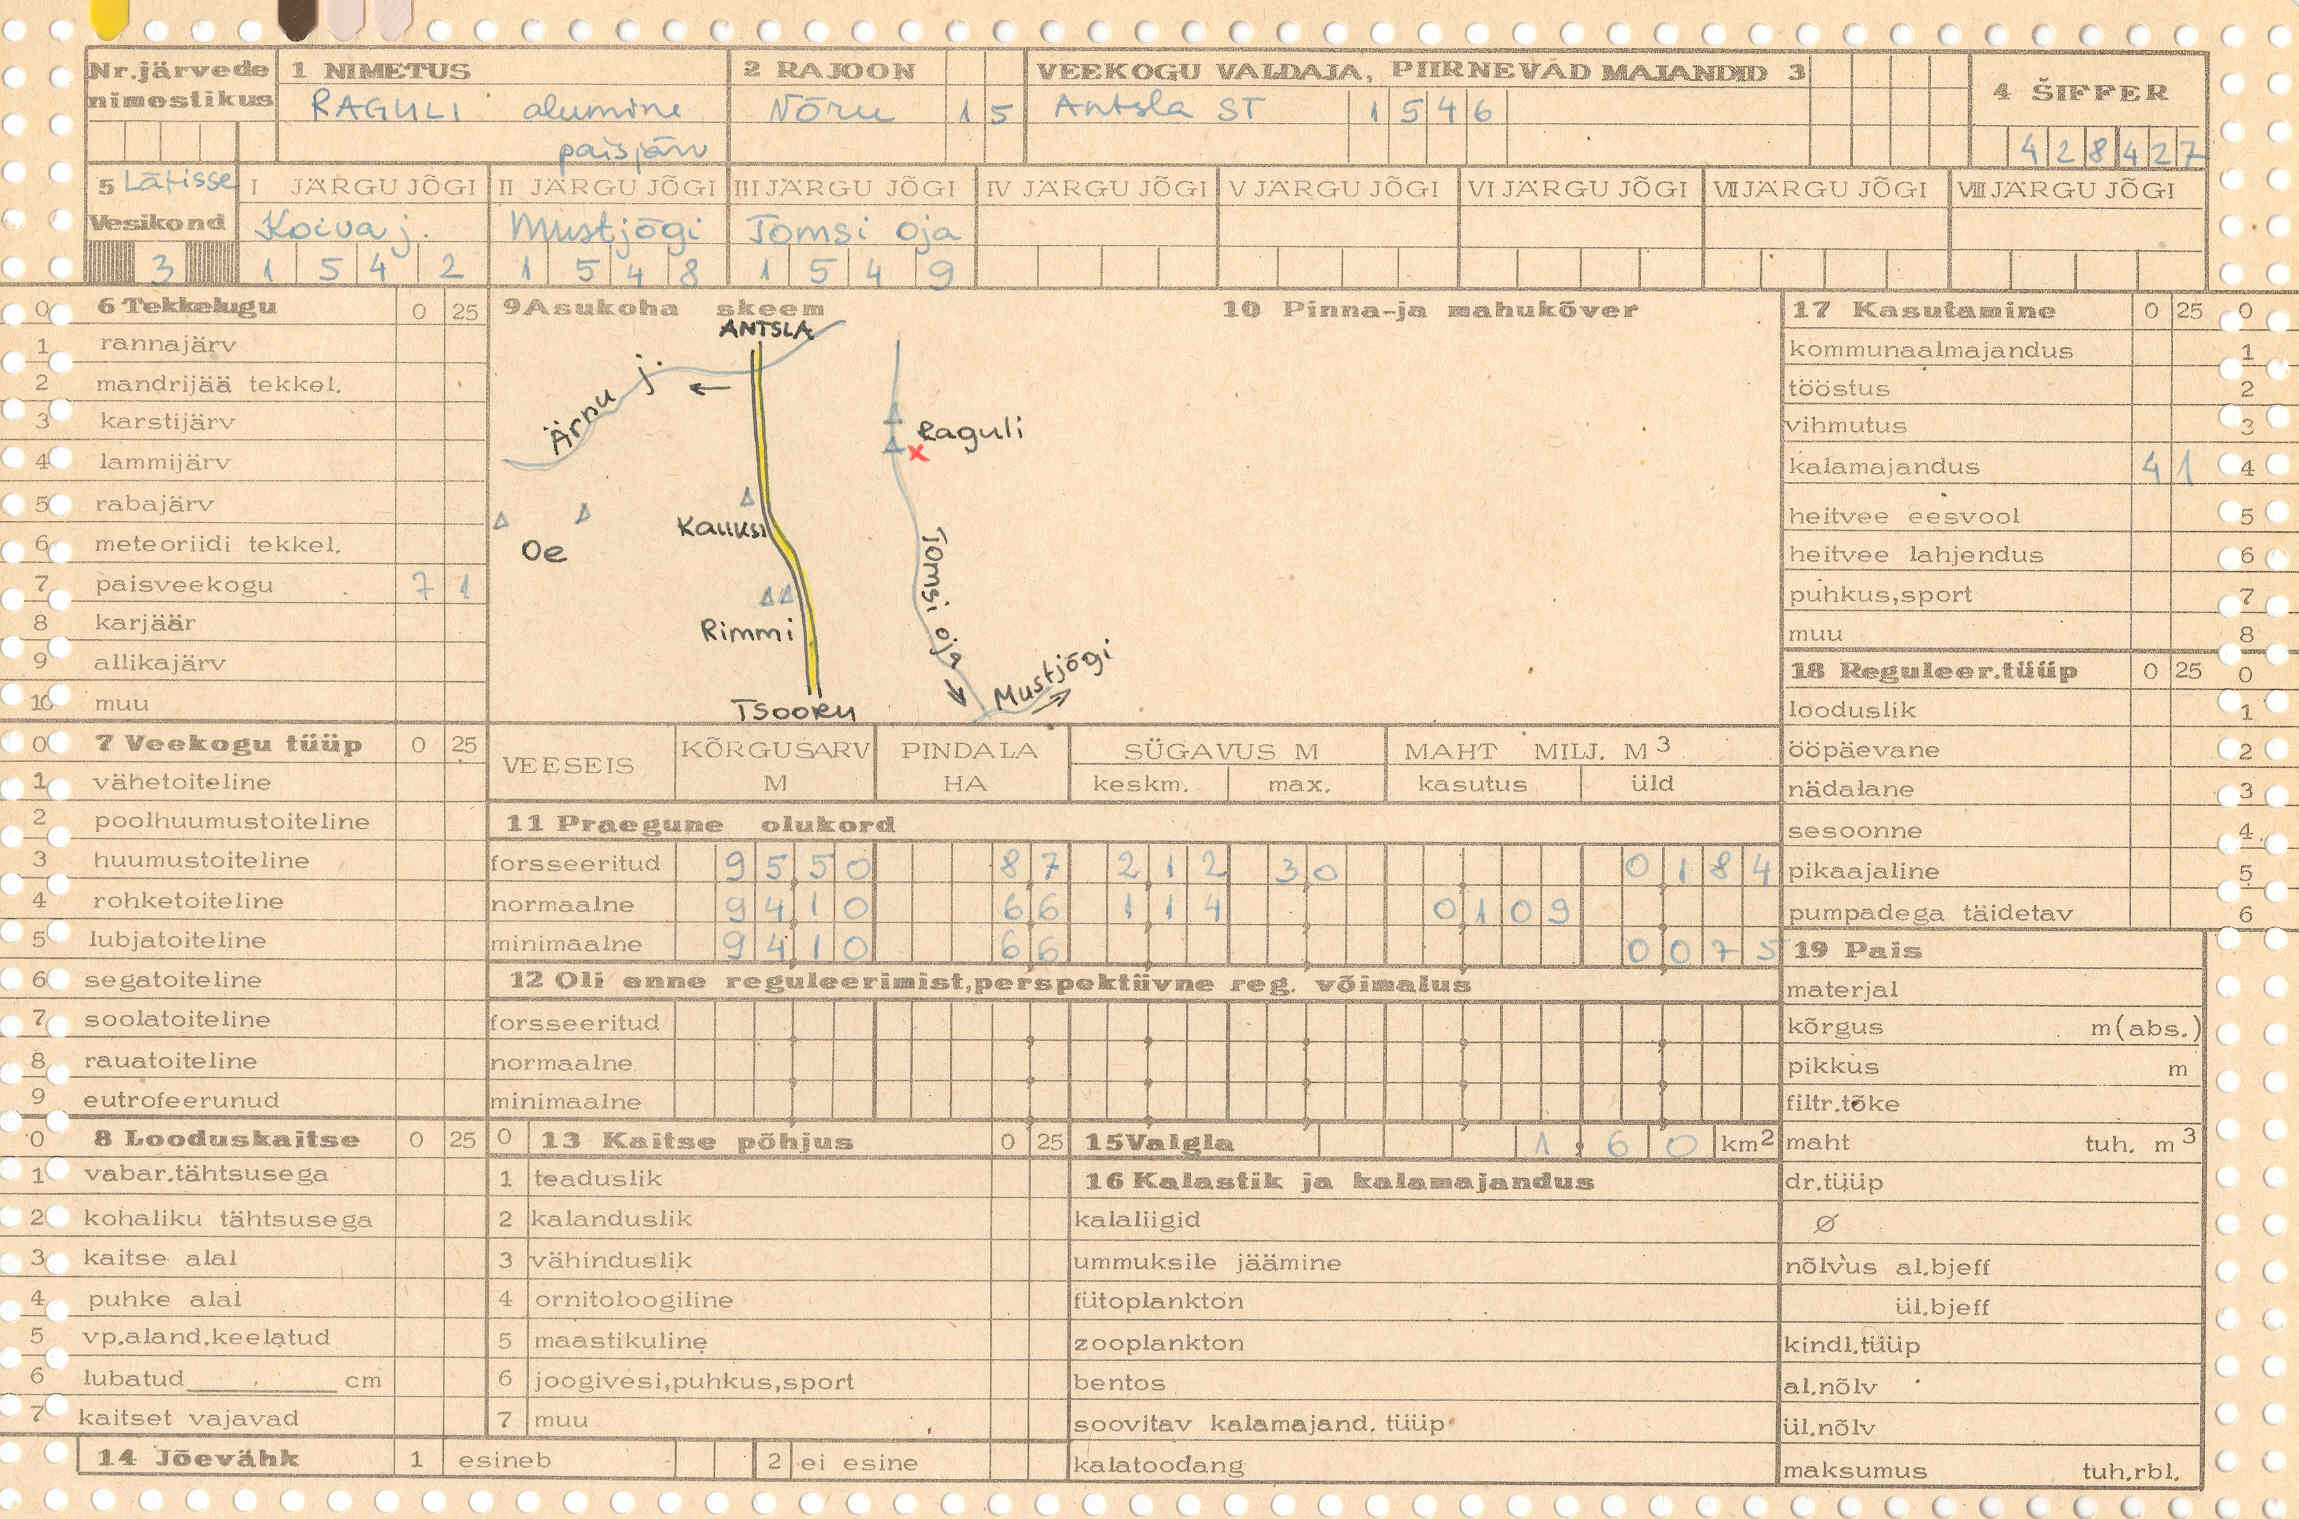 Nr.järvede nimestikus
1 NIMETUS
RAGULI alumine
paisjärv
2 RAJOON
Võru 15
VEEKOGU VALDAJA, PIIRNEVAD MAJANDID 3
Antsla ST 1546
4 ŠIFFER
428427
5 Lätisse
Vesikond
3
I JÄRGU JÕGI
Koiva j.
1542
II JÄRGU JÕGI
Mustjõgi
1548
III JÄRGU JÕGI
Tomsi oja
1549
IV JÄRGU JÕGI
V JÄRGU JÕGI
VI JÄRGU JÕGI
VII JÄRGU JÕGI
VIII JÄRGU JÕGI
0 6 Tekkelugu 0 25
1 rannajärv
2 mandrijää tekkel.
3 karstijärv
4 lammijärv
5 rabajärv
6 meteoriidi tekkel.
7 paisveekogu 7 1
8 karjäär
9 allikajärv
10 muu
0 7 Veekogu tüüp 0 25
1 vähetoiteline
2 poolhuumustoiteline
3 huumustoiteline
4 rohketoiteline
5 lubjatoiteline
6 segatoiteline
7 soolatoiteline
8 rauatoiteline
9 eutrofeerunud
0 8 Looduskaitse 0 25
1 vabar.tähtsusega
2 kohaliku tähtsusega
3 kaitse alal
4 puhke alal
5 vp.aland.keelatud
6 lubatud cm
7 kaitset vajavad
14 Jõevähk 1 esineb 2 ei esine
9 Asukoha skeem
10 Pinna-ja mahukõver
ANTSLA
Ärnu j.
Raguli
x
Kauksi
Oe
Tomsi oja
Rimmi
Mustjõgi
TSOORU
VEESEIS
KÕRGUSARV M
PINDALA HA
SÜGAVUS M
keskm. max.
MAHT MILJ. M3
kasutus üld
11 Praegune olukord
forsseeritud 9550 87 212 30 0184
normaalne 9410 66 114 0109
minimaalne 9410 66 0075
12 Oli enne reguleerimist,perspektiivne reg. võimalus
forsseeritud
normaalne
minimaalne
0 13 Kaitse põhjus 0 25
1 teaduslik
2 kalanduslik
3 vähinduslik
4 ornitoloogiline
5 maastikuline
6 joogivesi,puhkus,sport
7 muu
15 Valgla 1.60 km2
16 Kalastik ja kalamajandus
kalaliigid
ummuksile jäämine
fütoplankton
zooplankton
bentos
soovitav kalamajand. tüüp
kalatoodang
17 Kasutamine 0 25 0
kommunaalmajandus 1
tööstus 2
vihmutus 3
kalamajandus 4 1 4
heitvee eesvool 5
heitvee lahjendus 6
puhkus,sport 7
muu 8
18 Reguleer.tüüp 0 25 0
looduslik 1
ööpäevane 2
nädalane 3
sesoonne 4
pikaajaline 5
pumpadega täidetav 6
19 Pais
materjal
kõrgus m(abs.)
pikkus m
filtr.tõke
maht tuh. m3
dr.tüüp
Ø
nõlvus al.bjeff
ül.bjeff
kindl.tüüp
al.nõlv
ül.nõlv
maksumus tuh.rbl.